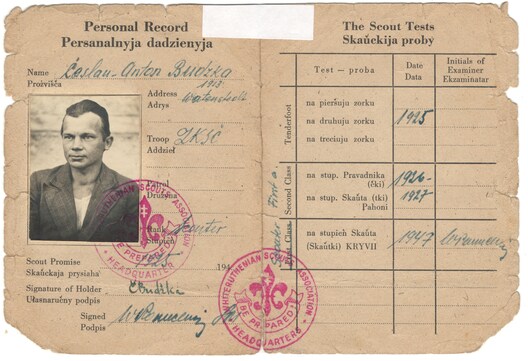 Personal Record
Persanalnyja dadzienyja
Name Česlau-Anton Budzka
Prožvišča
Address
Adrys Watenstedt
Troop ZKSČ
Addzieł
Patrol
Družyna
Rank
Stupień
Scout Promise 194
Skaŭckaja prysiaha
Signature of Holder Č Budzka
Ułasnaručny podpis
Signed
Podpis
WHITERUTHENIAN SCOUTS ASSOCIATION
BE PREPARED
HEADQUARTERS
The Scout Tests
Skaŭckija proby
Test — proba
Date
Data
Initials of
Examiner
Ekzaminatar
Tenderfoot
na pieršuju zorku
na druhuju zorku 1925
na treciuju zorku
Second Class
na stup. Pravadnika 1926
(čki)
na stup. Skaŭta (tki) 1927
Pahoni
First Class
na stupień Skaŭta 1947
(Skaŭtki) KRYVII
WHITERUTHENIAN SCOUTS ASSOCIATION
BE PREPARED
HEADQUARTERS